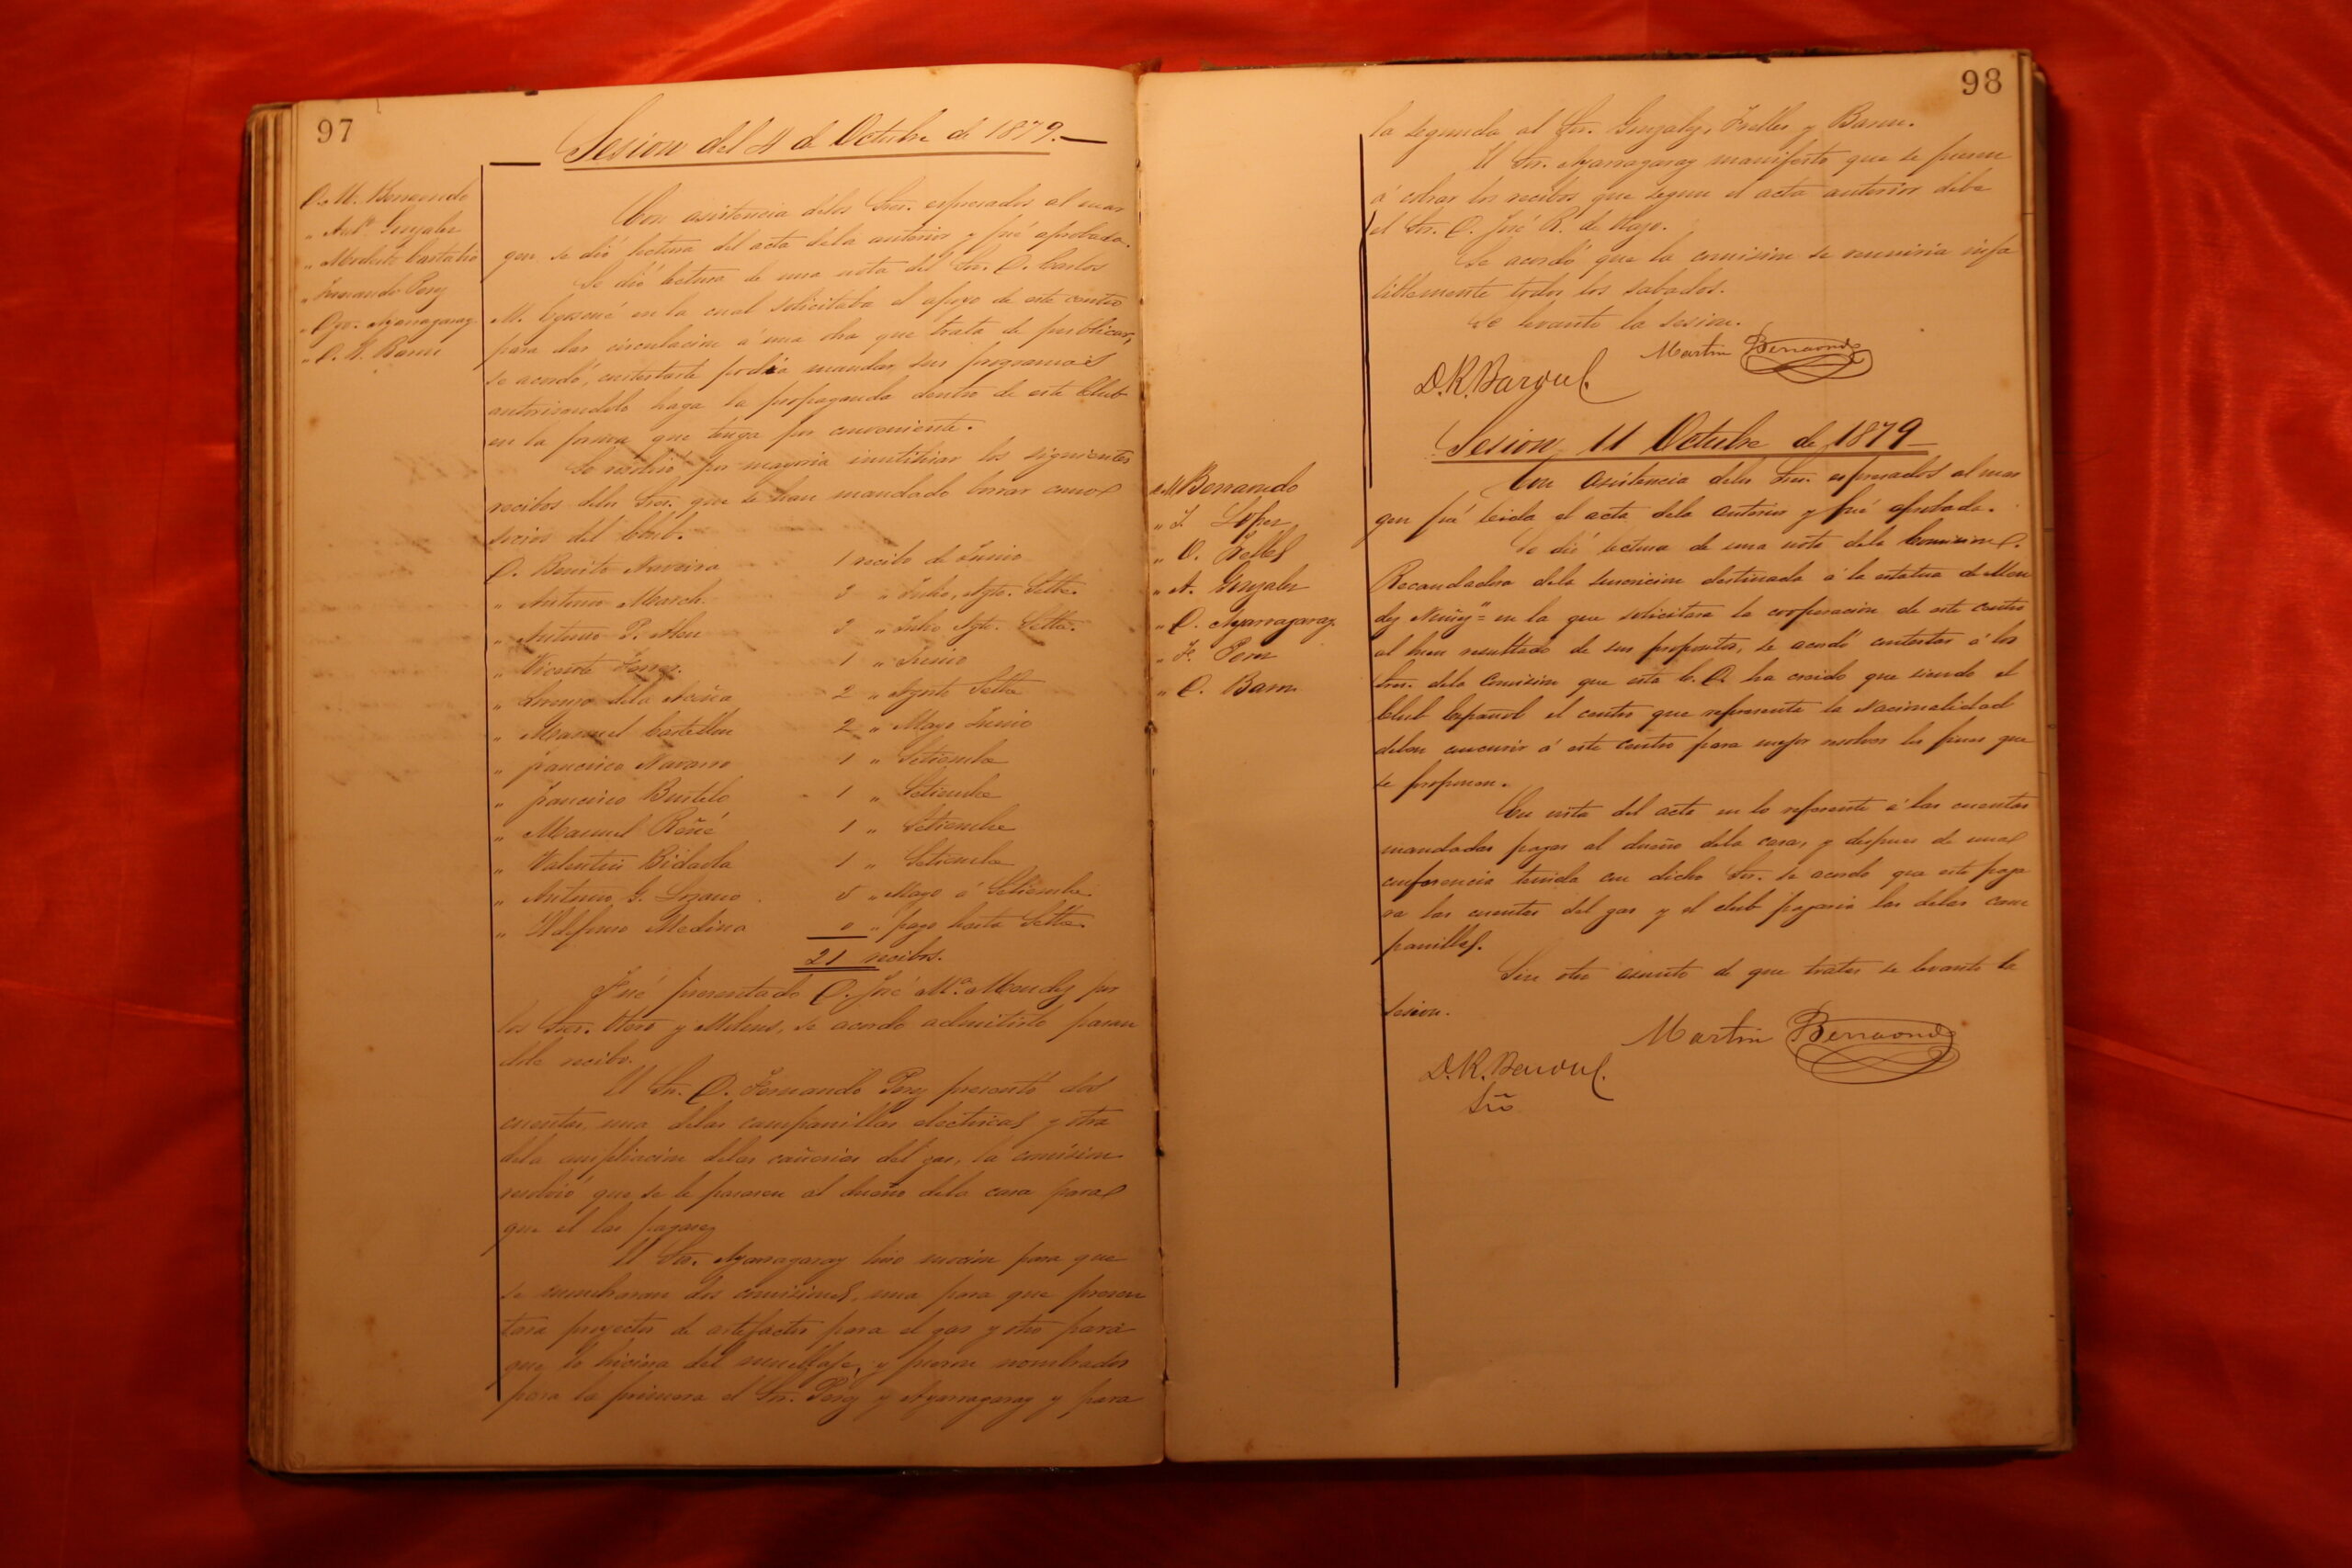 97
Sesion del 4 de Octubre de 1879.
D. M. Berraondo
" Anto. Gonzalez
" Modesto Castaño
" Fernando Perez
" Ayarragaray
" D. R. Barou
Con asistencia delos Sres. espresados al mar
gen se dió lectura del acta dela anterior y fué aprobada.
Se dió lectura de una nota del Sr. D. Carlos
M. en la cual solicitaba el apoyo de este centro
para dar circulacion á una obra que trata de publicar,
se acordó, contestarle podia mandar sus programas
autorisandolo haga la propaganda dentro de este Club
en la forma que tenga por conveniente.
Se resolvió por mayoria inutilizar los siguientes
recibos delos Sres. que se han mandado borrar como
socios del Club.
D. Benito Naveira 1 recibo de Junio
" Antonio March 3 " Julio, Agto. Setbe.
" Antonio P. 3 " Julio Agto. Setbe.
" Vicente Ferrer 1 " Junio
" Lorenzo dela 2 " Agosto Setbe
" Manuel Castellon 2 " Mayo Junio
" Francisco Navarro 1 " Setiembe
" Francisco Bustelo 1 " Setiembe
" Manuel Reñé 1 " Setiembe
" Valentin Bidaola 1 " Setiembe
" Antonio G. Lozano 5 " Mayo á Setiembe
" Ildefonso Medina 0 " pago hasta Setbe.
21 recibos.
Fué presentado D. José Ma. Mendez por
los Sres. Otero y se acordo admitirlo pasan
dole recibo.
El Sr. D. Fernando Perez presentó dos
cuentas, una delas campanillas electricas y otra
dela ampliacion delas cañerias del gas, la comision
resolvió que se le pasasen al dueño dela casa para
que el las pagase
El Sr. Ayarragaray hizo mocion para que
se nombraran dos comisiones, una para que presen
tara proyectos de artefactos para el gas y otro para
que lo hiciera del mueblaje, y fueron nombrados
para la primera el Sr. Perez y Ayarragaray y para
98
la segunda al Sr. Gonzalez, Telles y Barou.
El Sr. Ayarragaray manifesto que se
á cobrar los recibos que segun el acta anterior debe
el Sr. D. José R. de
Se acordó que la comision se reuniria infa
liblemente todos los sabados.
Se levanto la sesion.
Martin Berraondo
D. R. Barou
Sesion 11 Octubre de 1879
D. M. Berraondo
" J. Lopez
" D. Telles
" A. Gonzalez
" D. Ayarragaray
" F. Perez
" D. Barou
Con asistencia delos Sres. espresados al mar
gen fué leida el acta dela anterior y fué aprobada.
Se dió lectura de una nota dela Comision
Recaudadora dela suscricion destinada á la estatua de Men
dez Nuñez" en la que solicitara la cooperacion de este centro
al buen resultado de sus propositos, se acordó contestar á los
Sres. dela Comision que esta C. D. ha creido que siendo el
Club Español el centro que representa la Nacionalidad
deben concurrir á este Centro para mejor resolver los fines que
se proponen.
En vista del acta en lo referente á las cuentas
mandadas pagar al dueño dela casa, y despues de una
conferencia tenida con dicho Sr. se acordo que este paga
ra las cuentas del gas y el club pagaria las delas cam
panillas.
Sin otro asunto de que tratar se levanto la
sesion.
Martin Berraondo
D. R. Barou
Srio